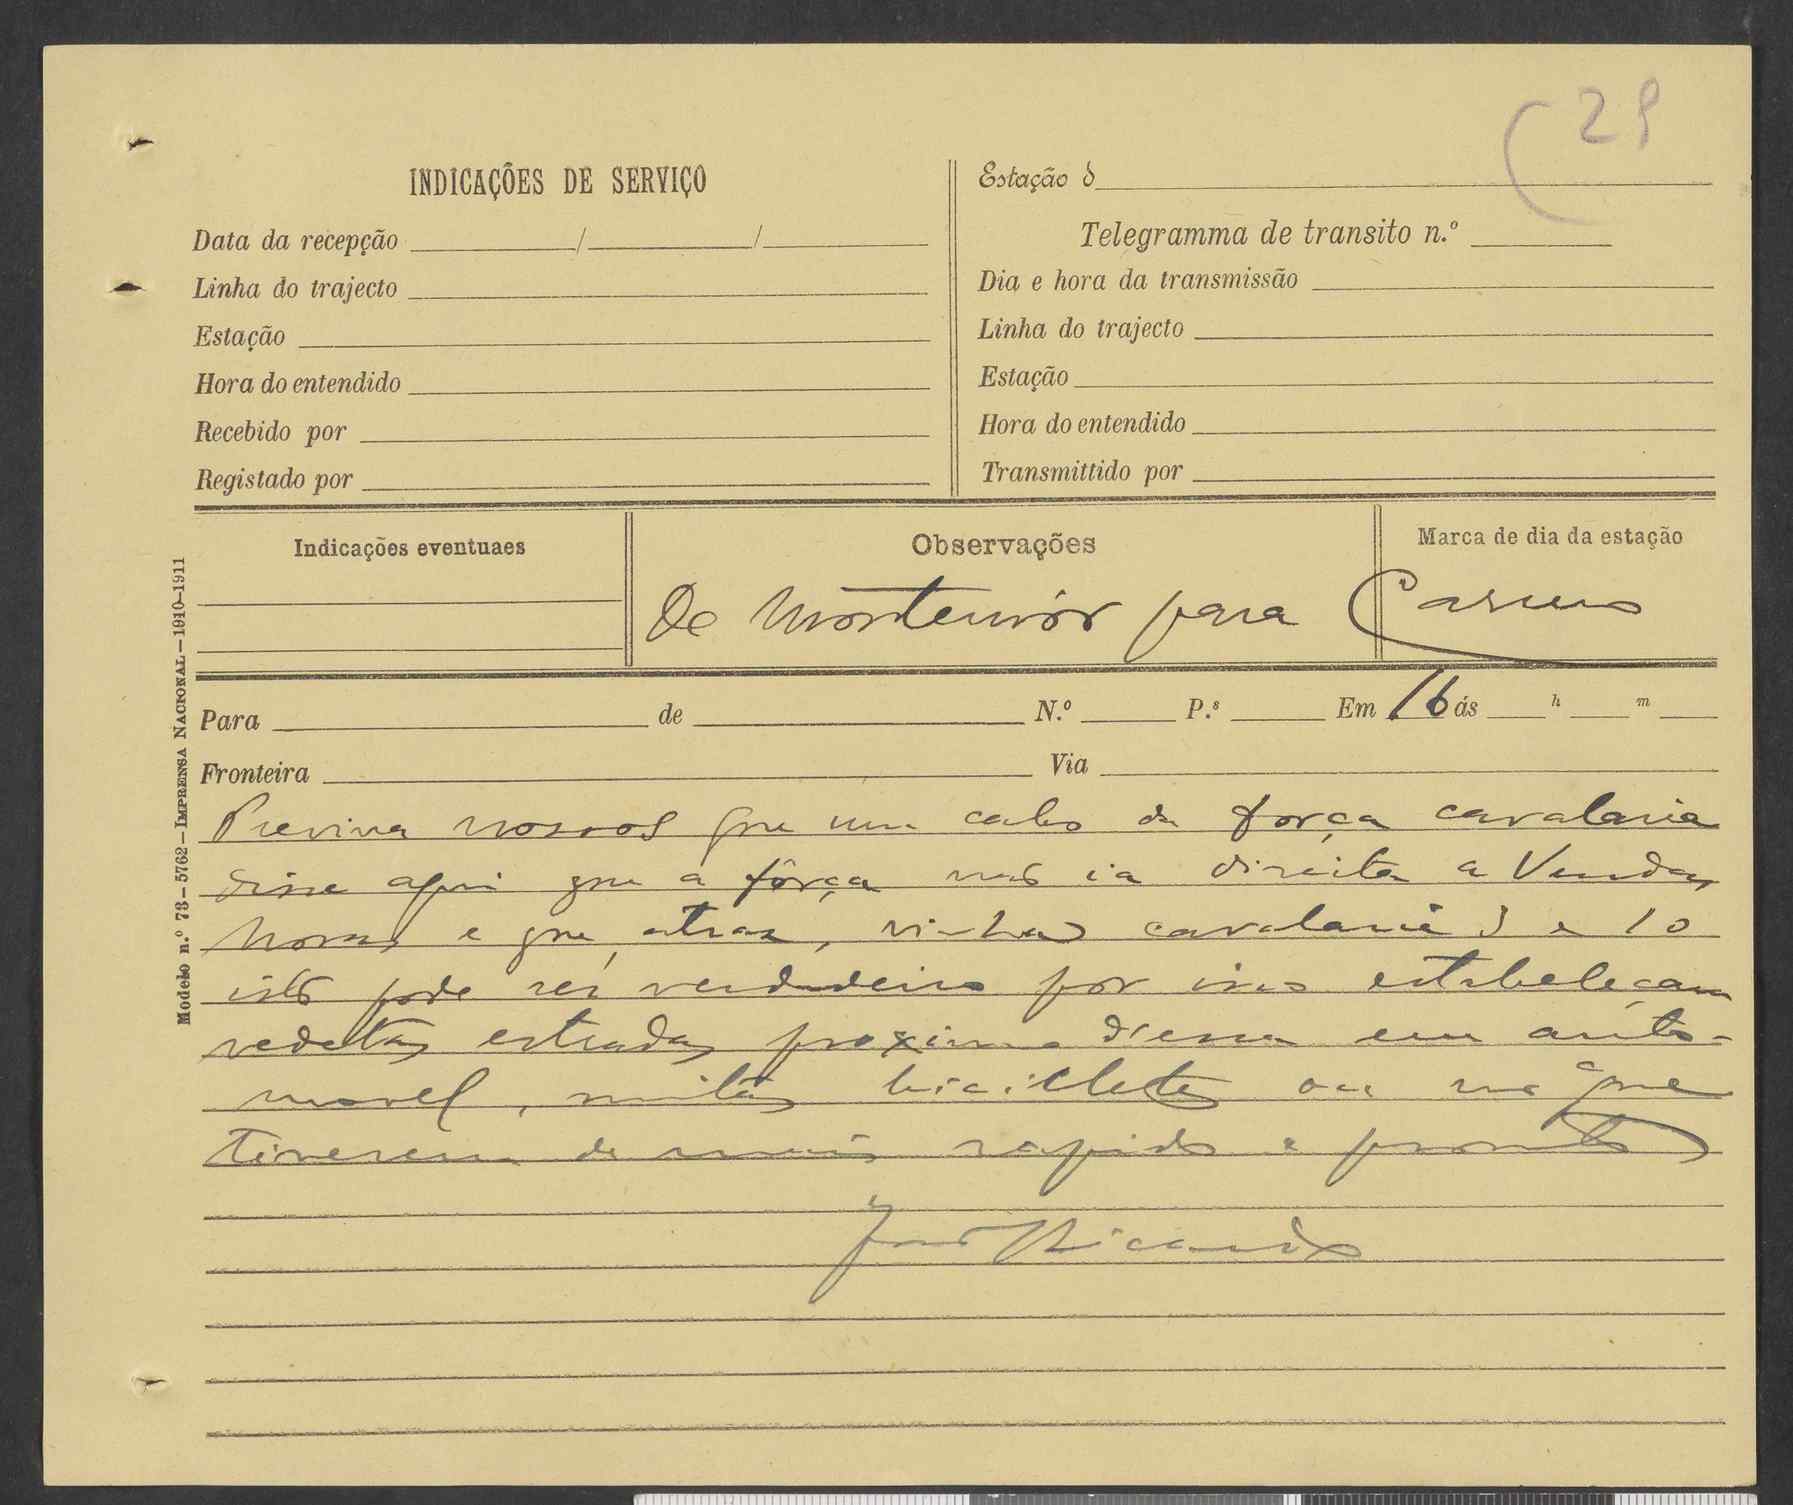 29
INDICAÇÕES DE SERVIÇO
Data da recepção / /
Linha do trajecto
Estação
Hora do entendido
Recebido por
Registado por
Estação d
Telegramma de transito n.º
Dia e hora da transmissão
Linha do trajecto
Estação
Hora do entendido
Transmittido por
Indicações eventuaes
Observações
Marca de dia da estação
De Montemór para
Para de N.º P.s Em 16 ás h m
Fronteira Via
Previna nossos que um cabo da força cavalaria
disse aqui que a fôrça não ia direita a Vendas
Novas e que, atraz, vinha cavalaria e 10
isto pode ser verdadeiro por isso estabeleçam
vedetas estradas proximo dessa em auto-
movel, bicicletes ou no que
tiverem de mais rapido e pronto
José Ricardo
Modelo n.º 73-5762-IMPRENSA NACIONAL-1910-1911